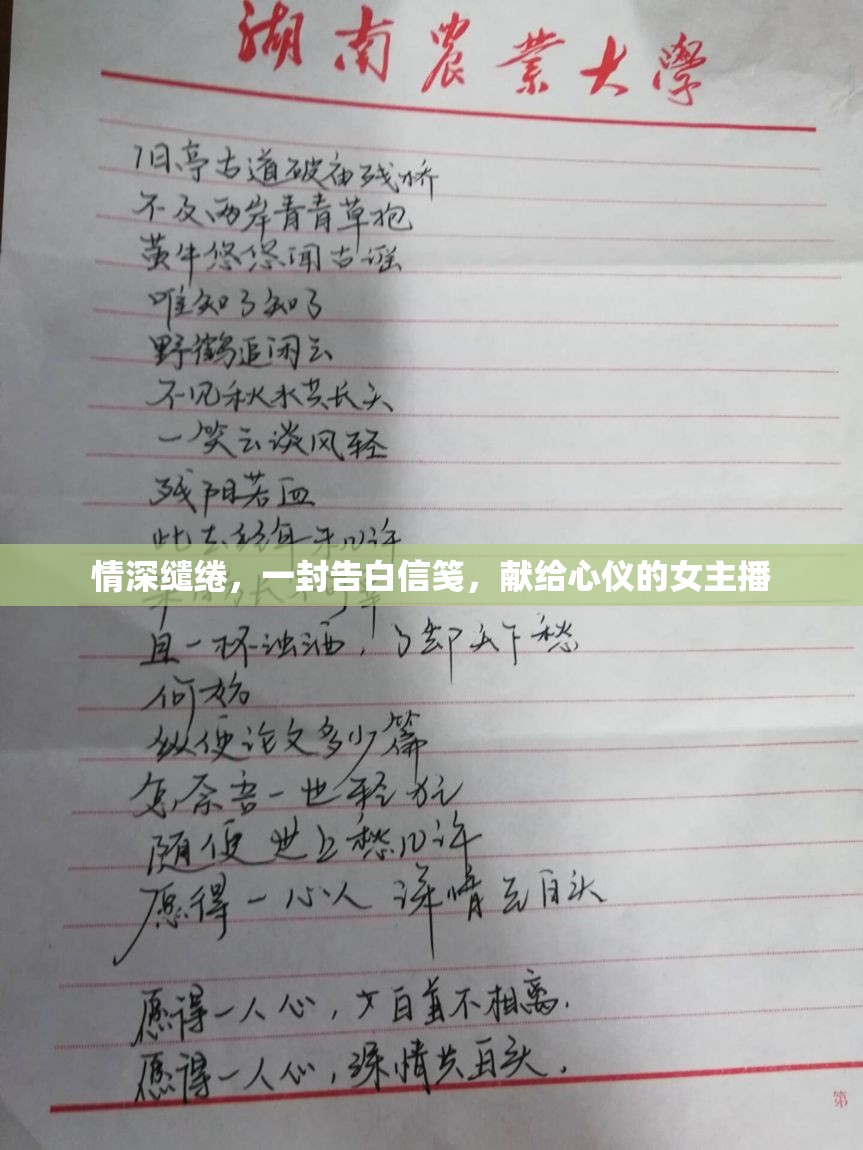 湖南農業大學
旧亭古道破庙残桥
不及两岸青青草抱
黄牛悠悠闻古谣
唯知了知了
野鹤追闲云
不见秋水共长天
一笑云谈风轻
残阳若血
此去经年
情深缱绻，一封告白信笺，献给心仪的女主播
且一杯浊酒，了却天下愁
何妨
纵使论文多少篇
怎奈吾一世轻狂
随便世上愁几许
愿得一心人 深情至白头
愿得一人心，白首不相离.
愿得一人心，深情共白头.
第